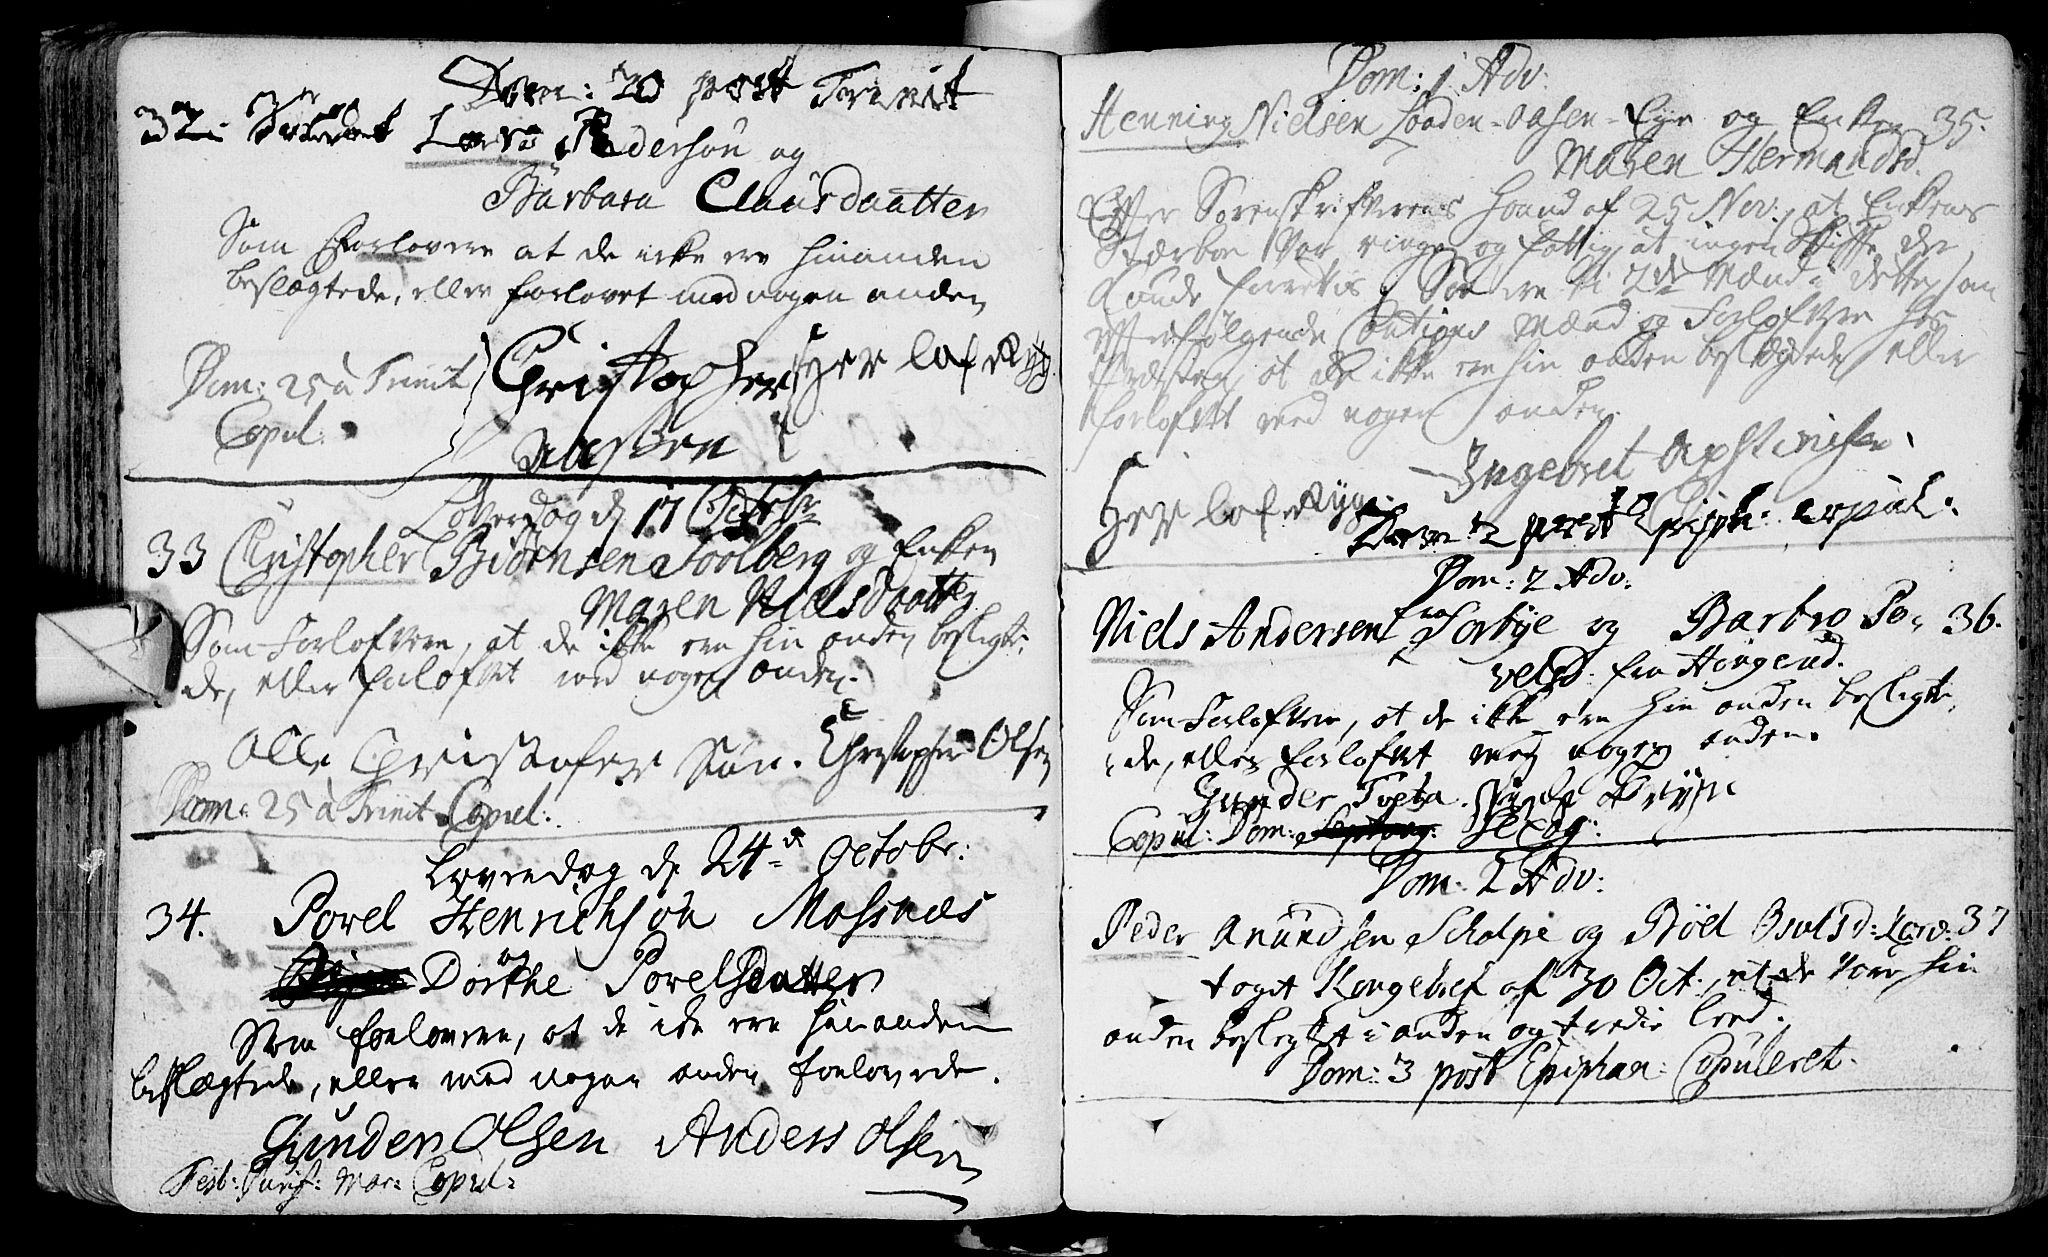 Dom: 20 post Trinit
32. Lars Pedersøn og
Barbara Clausdaatter
Som Forlovere at de icke ere hinanden
beslægtede, eller forlovet med nogen anden
Christopher Herlof Ryg
Dom: 25 à Trinit
Copul.
Løverdag d 17 Octobr
33 Christopher Biørnsen Soolberg og Enken
Maren Nielsdaatter
Som Forlofvere, at de ikke ere hin anden beslegte-
de, eller forlofvet med nogen anden.
Olle Christofer Søn. Christopher Olsen
Dom: 25 à Trinit Copul:
Løverdag d. 24de Octobr:
34. Povel Henrichsøn Mosnæs
og
Dorthe Povelsdatter
Som forlovere, at de icke ere hinanden
beslægtede, eller med nogen anden forlovede.
Gunder Olsen Anders Olsen
Fest: Purif: Mar: Copul:
Dom: 1 Adv:
Henning Nielsen Eye og Enken 35.
Maren Hermandsd.
Efter Sorenskrifverens Haand af 25 Nov:, at Enkens
Stærboe var ringe og fattig, at ingen Skifte der
kunde forrettis, Saa ere vi 2de Mænd i dette som
efterfølgende Cautions Mænd og Forlofvere hos
Præsten, at de ikke ere hin anden beslegtede eller
forlofvet med nogen anden.
Ingebret
Herlof Ryg.
Dom 2 post Epiph: copul:
Dom: 2 Adv:
Niels Andersen fra Torbye og Barbro Po- 36.
velsd. fra Haugend.
Som Forlofvere, at de ikke ere hin anden beslegte-
de, eller forlofvet med nogen anden.
Gunder Tveta.
Copul: Dom: Sexag:
Dom. 2 Adv:
Peder Anundsen Scholpe og Bøel Osvlsd: 37
taget Kongebref af 30 Oct., at de vare hin
anden beslegtet i anden og tredie Leed.
Dom: 3 post Epiphan: Copuleret.